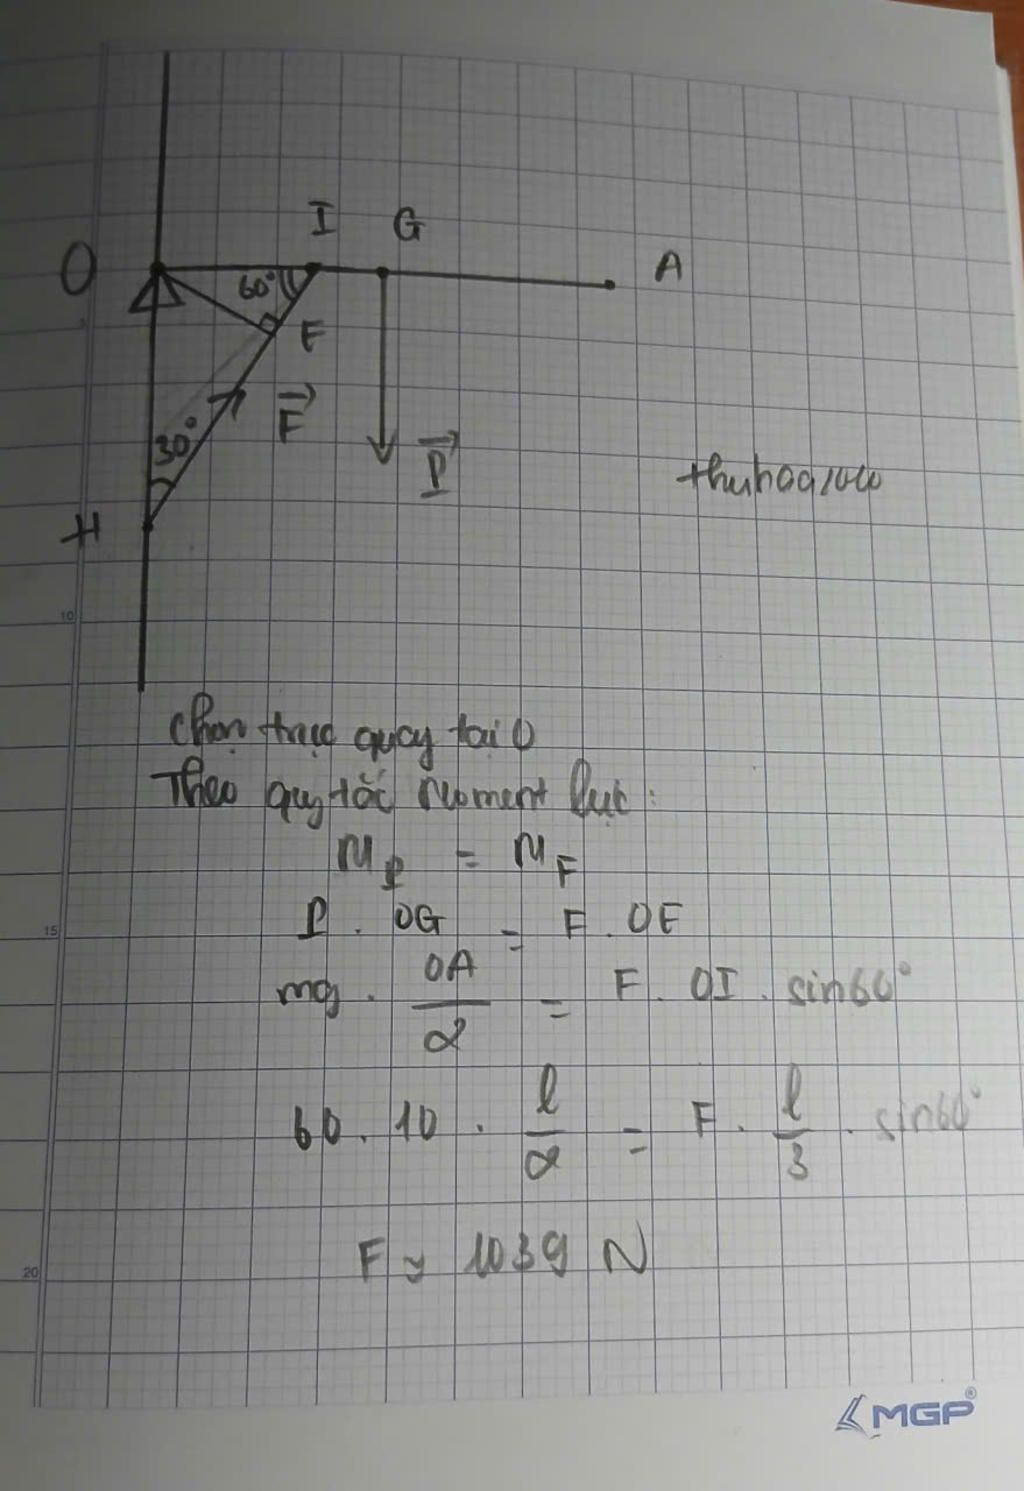 I G
O
A
60°
E
F
30°
P
thuhoa1000
H
10
Chọn trục quay tại O
Theo quy tắc Moment lực:
M_P = M_F
15
P . OG = F . OE
mg . OA/2 = F . OI . sin60°
60 . 10 . l/2 = F . l/3 . sin60°
F ≈ 1039 N
20
MGP®